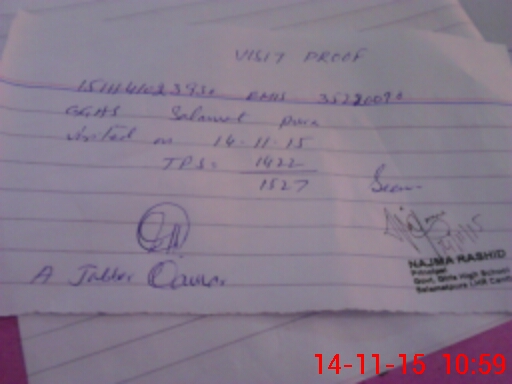 VISIT PROOF
EMIS
GGHS Salamat pura
visited on 14.11.15
TPS= 1422
1527
Seen
A Jabbar
NAJMA RASHID
Principal
Govt. Girls High School
Salamatpura (LHR Cantt)
14-11-15 10:59